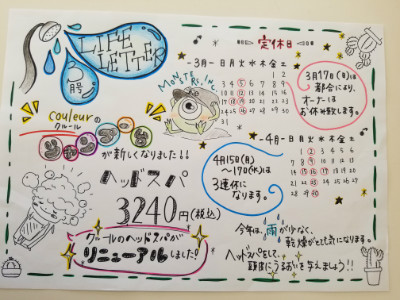 LIFE
LETTER
3月号
定休日
-3月- 日 月 火 水 木 金 土
1 2
3 4 5 6 7 8 9
10 11 12 13 14 15 16
17 18 19 20 21 22 23
24 25 26 27 28 29 30
31
3月17日(日)は
都合により、
オーナーは
お休み致します。
couleurの
クルール
シャンプー台
が新しくなりました!!
-4月- 日 月 火 水 木 金 土
1 2 3 4 5 6
7 8 9 10 11 12 13
14 15 16 17 18 19 20
21 22 23 24 25 26 27
28 29 30
4月15日(月)
〜17日(水)は
3連休に
なります。
ヘッドスパ
3240円(税込)
クルールのヘッドスパが
リニューアルしました!
今年は、雨が少なく、
乾燥がとても気になります。
ヘッドスパをして、
頭皮にうるおいを与えましょう!!